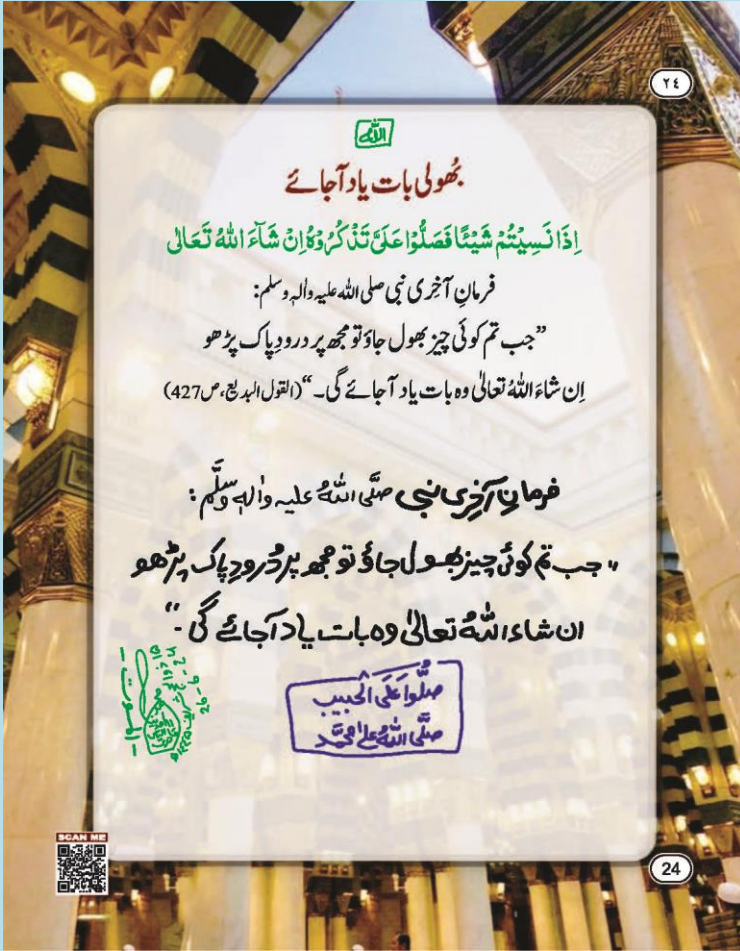 ٢٤
اللہ
بُھولی بات یاد آجائے
اِذَا نَسِيْتُمْ شَيْئًا فَصَلُّوْا عَلَيَّ تَذْكُرُوْهُ اِنْ شَآءَ اللّٰهُ تَعَالٰى
فرمانِ آخِری نبی صلی اللہ علیہ واٰلہٖ وسلم:
”جب تم کوئی چیز بھول جاؤ تو مجھ پر درودِ پاک پڑھو
اِن شاءَ اللہُ تعالیٰ وہ بات یاد آجائے گی۔“ (القول البدیع، ص427)
فرمانِ آخِری نبی صَلَّی اللّٰہُ علیہ واٰلہٖ وسَلَّم:
”جب تم کوئی چیز بھول جاؤ تو مجھ پر دُرودِ پاک پڑھو
ان شاء اللّٰہُ تعالیٰ وہ بات یاد آجائے گی۔“
صَلُّوا عَلَی الْحَبِیب
صَلَّی اللّٰہُ علیٰ محمَّد
SCAN ME
24